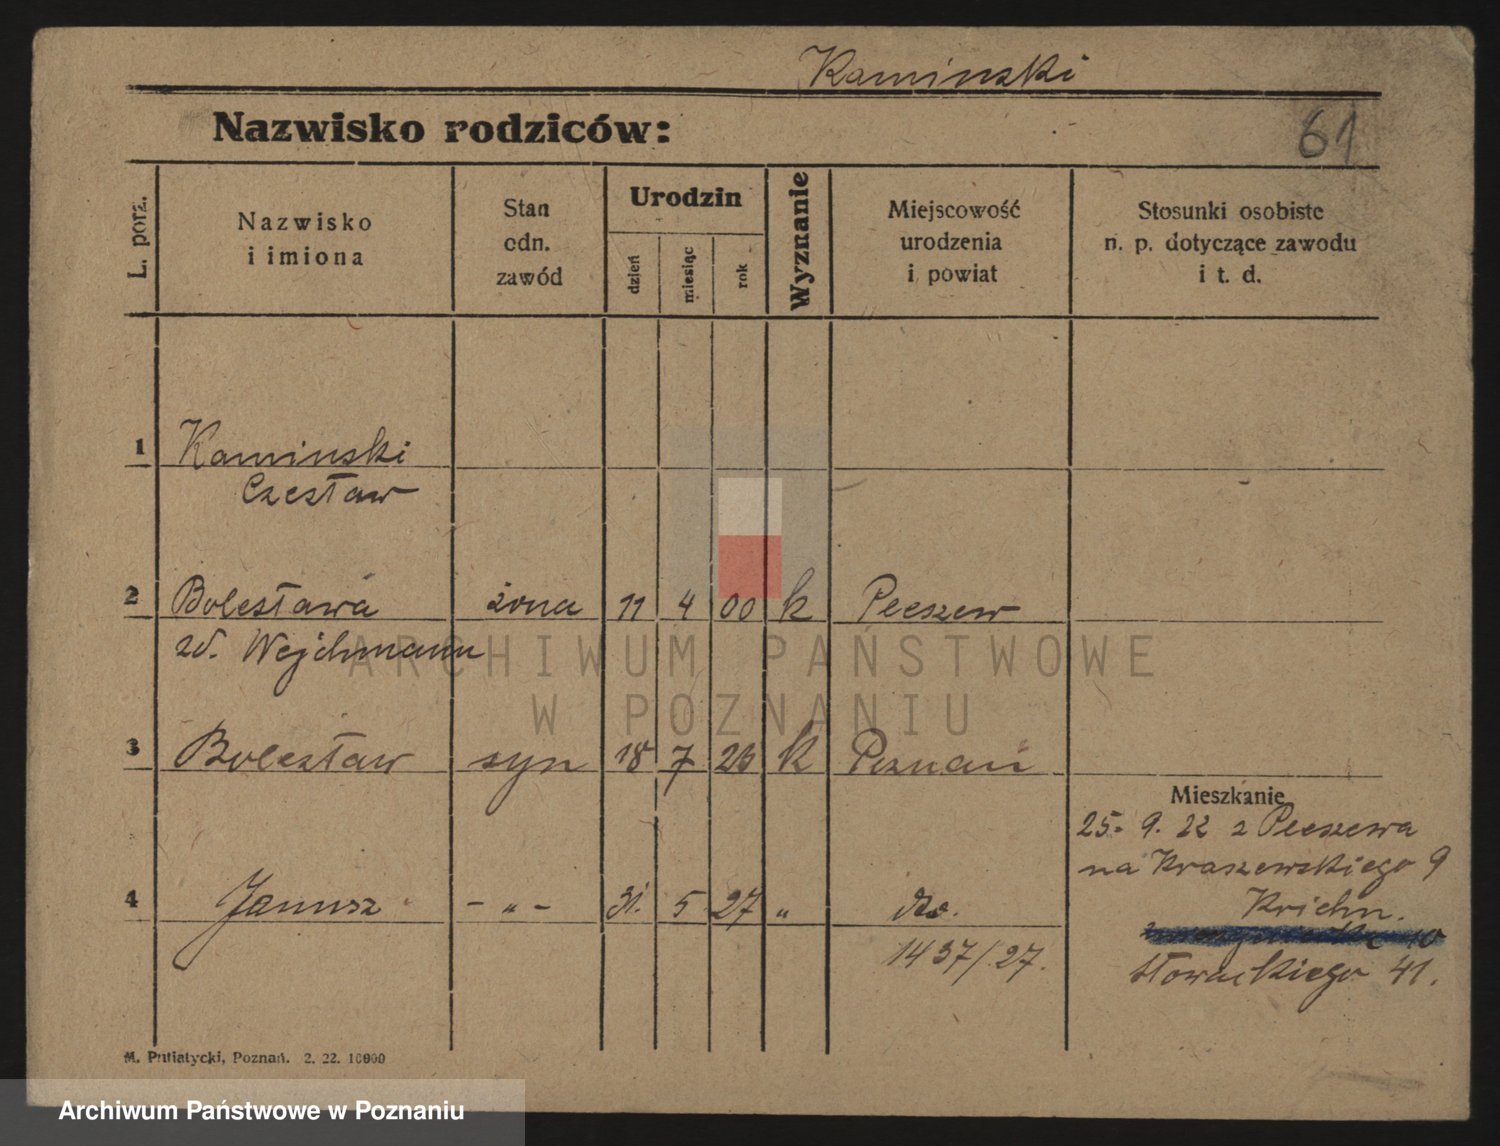 Kaminski
Nazwisko rodziców:
61
L. porz.
Nazwisko
i imiona
Stan
odn.
zawód
Urodzin
dzień
miesiąc
rok
Wyznanie
Miejscowość
urodzenia
i powiat
Stosunki osobiste
n. p. dotyczące zawodu
i t. d.
1 Kaminski
Czesław
2 Bolesława żona 11 4 00 k Pleszew
zd. Wejchmann
ARCHIWUM PAŃSTWOWE
W POZNANIU
3 Bolesław syn 18 7 23 k Poznań
Mieszkanie
25. 9. 22 z Pleszewa
na Kraszewskiego 9
4 Janusz - „ - 31. 5 27 „ dto.
Krichn.
10
1437/27.
Słowackiego 41.
M. Putiatycki, Poznań. 2. 22. 10000
Archiwum Państwowe w Poznaniu